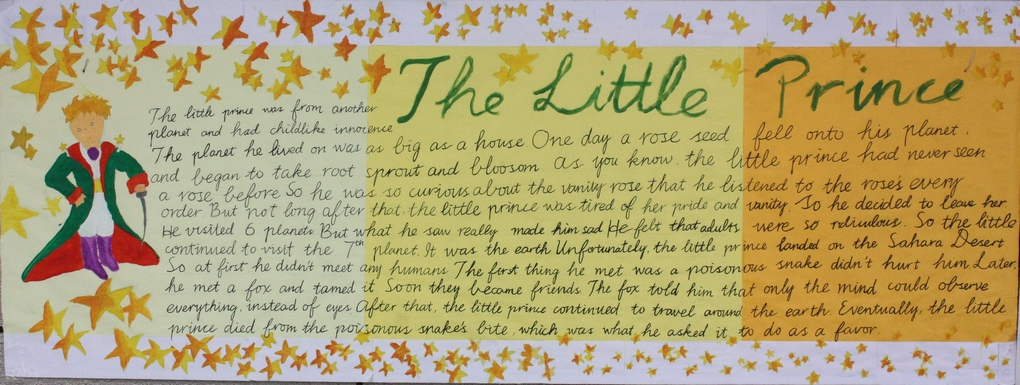 The Little Prince
The little prince was from another
planet and had childlike innocence
The planet he lived on was as big as a house. One day a rose seed fell onto his planet.
and began to take root sprout and bloosom. As you know, the little prince had never seen
a rose before. So he was so curious about the vanity rose that he listened to the rose's every
order. But not long after that, the little prince was tired of her pride and vanity. So he decided to leave her
He visited 6 planets. But what he saw really made him sad. He felt that adults were so ridiculous. So the little
continued to visit the 7th planet. It was the earth. Unfortunately, the little prince landed on the Sahara Desert
So at first he didn't meet any humans. The first thing he met was a poisonous snake didn't hurt him. Later,
he met a fox and tamed it. Soon they became friends. The fox told him that only the mind could observe
everything, instead of eyes. After that, the little prince continued to travel around the earth. Eventually, the little
prince died from the poisonous snake's bite, which was what he asked it to do as a favor.